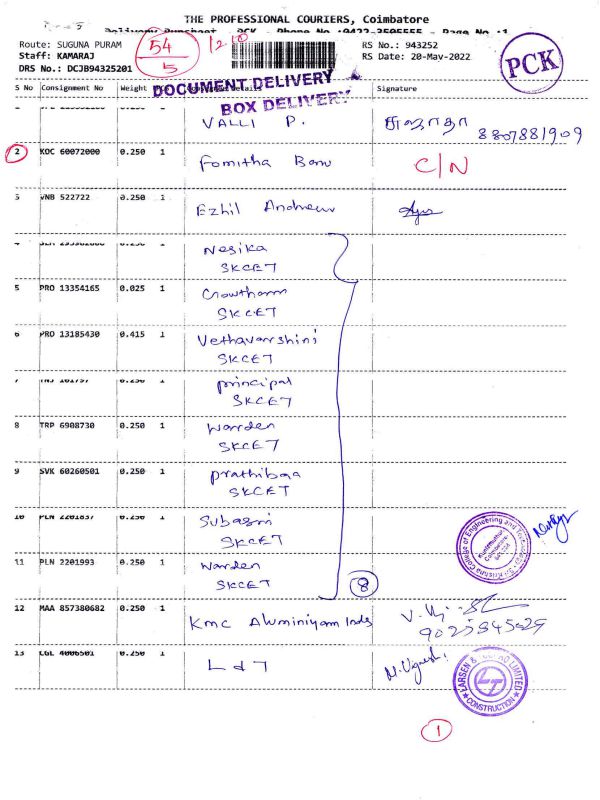 THE PROFESSIONAL COURIERS, Coimbatore
Delivery Runsheet - PCK - Phone No :0422-3505555 - Page No :1
Route: SUGUNA PURAM
Staff: KAMARAJ
DRS No.: DCJB94325201
54
5
RS No.: 943252
RS Date: 20-May-2022
PCK
DOCUMENT DELIVERY
BOX DELIVERY
S No Consignment No Weight Signature
VALLI P. சுஜாதா
8807881909
2 KOC 60072000 0.250 1 Fomitha Banu C/N
3 VNB 522722 0.250 1 Ezhil Andrew
4 Nesika
SKCET
5 PRO 13354165 0.025 1 Gowtham
SKCET
6 PRO 13185430 0.415 1 Vethavarshini
SKCET
7 0.250 1 principal
SKCET
8 TRP 6908730 0.250 1 Warden
SKCET
9 SVK 60260501 0.250 1 prathibaa
SKCET
10 PLN 2201837 0.250 1 Subasri
SKCET
11 PLN 2201993 0.250 1 Warden
SKCET
8
12 MAA 857380682 0.250 1 Kmc Aluminiyam Inds
9025845629
13 LGL 4006501 0.250 1 L & T M. Vignesh.
LARSEN & TOUBRO LIMITED
LT
CONSTRUCTION
1